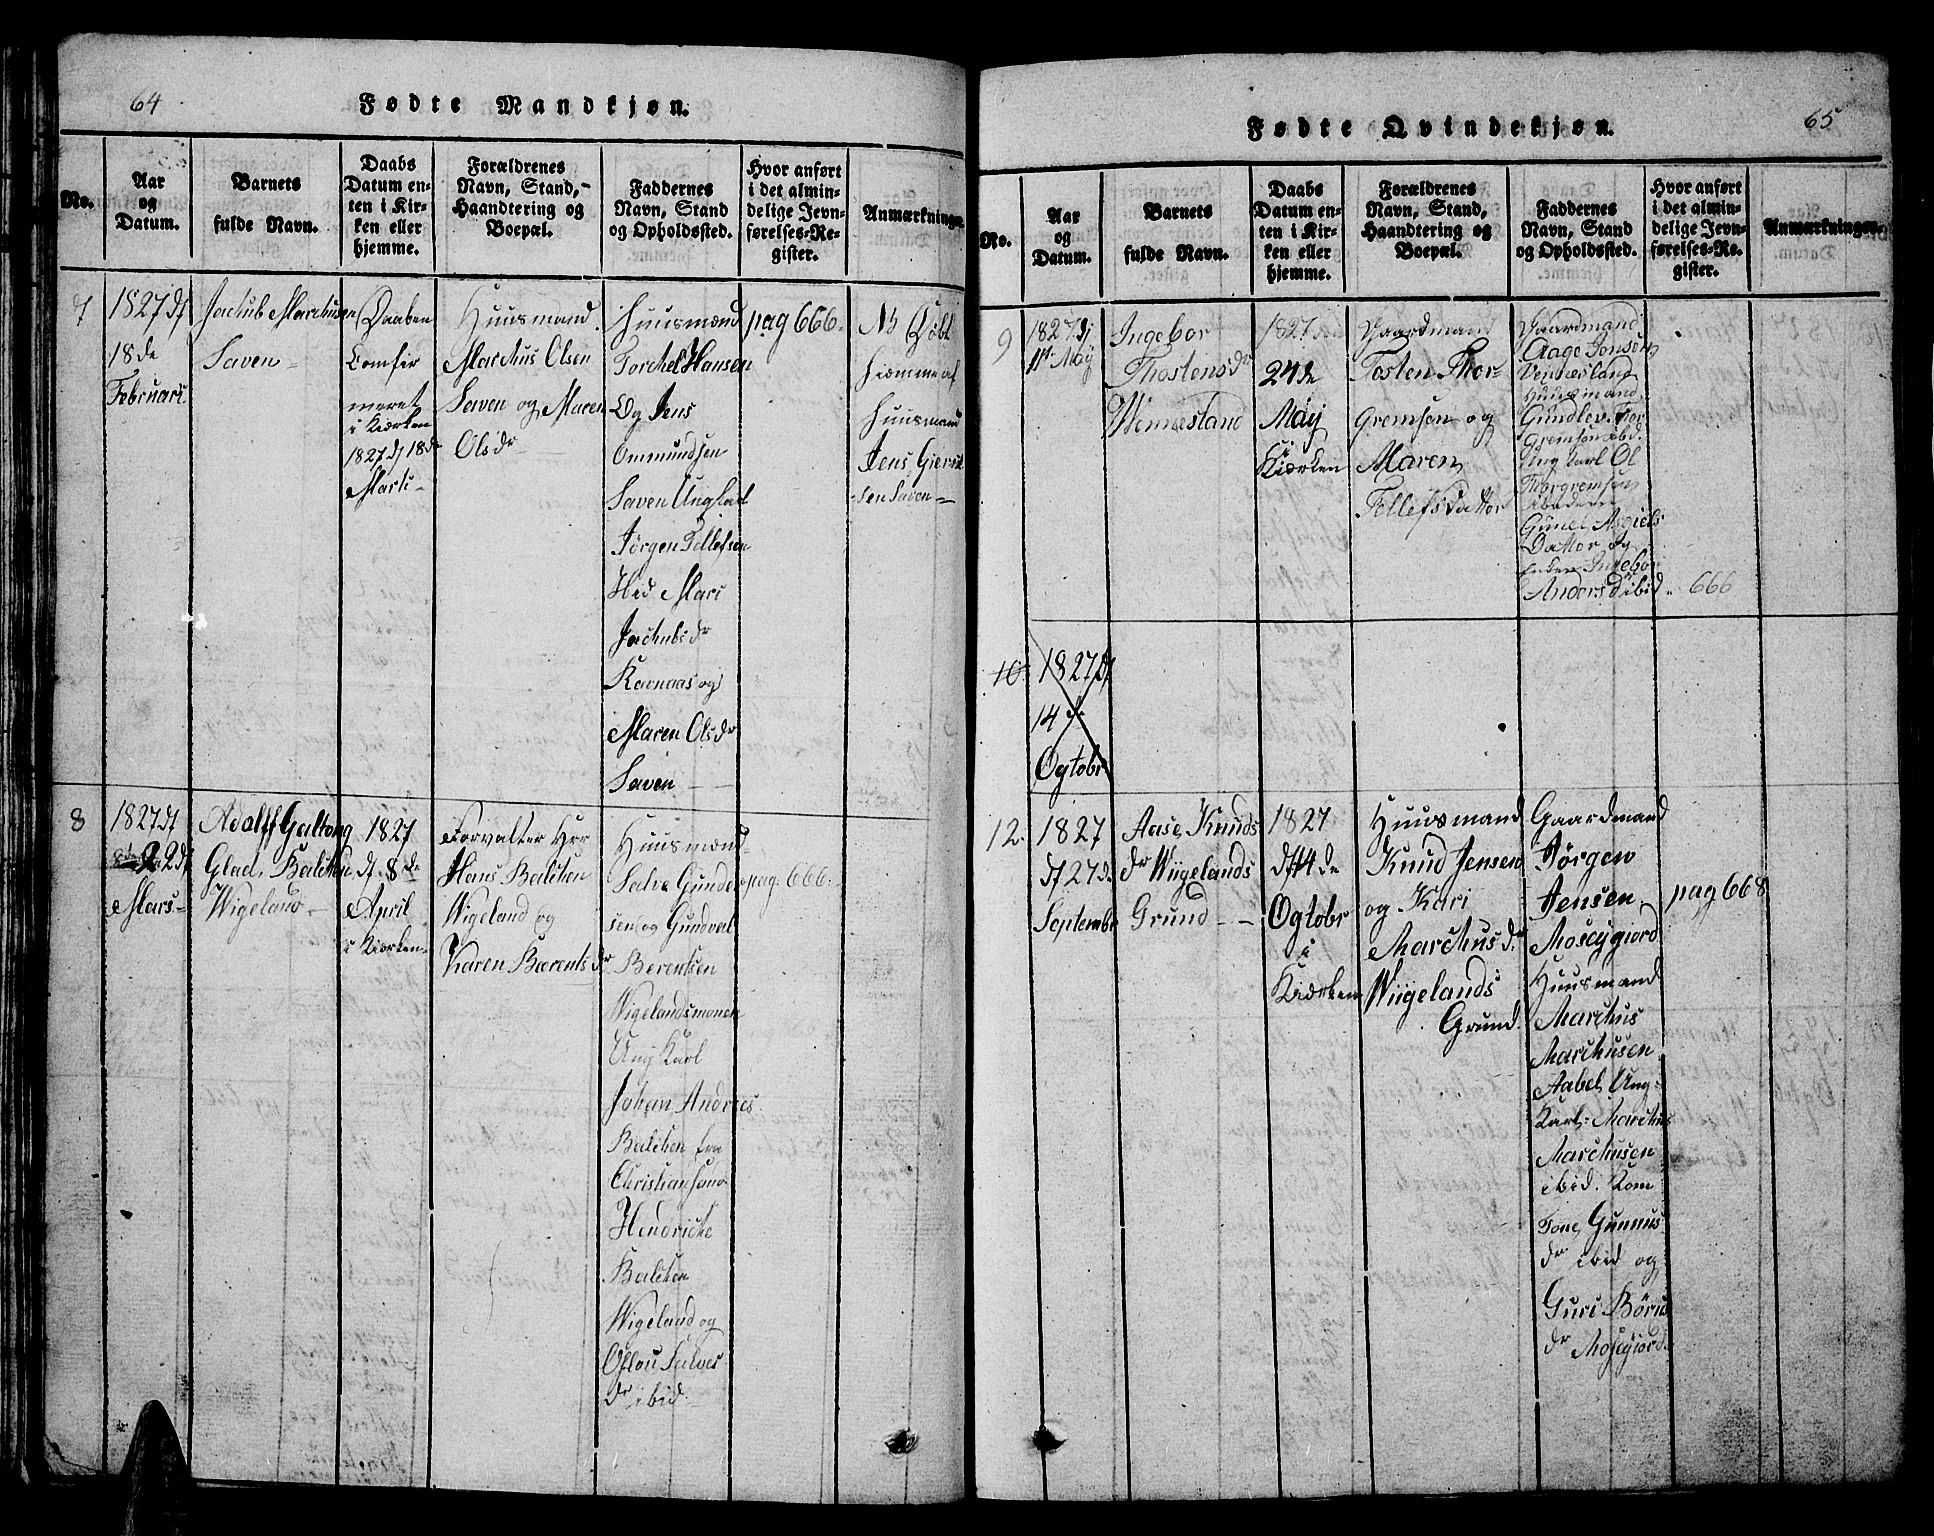 64
Fødte Mandkjøn.
No.
Aar
og
Datum.
Barnets
fulde Navn.
Daabs
Datum en-
ten i Kir-
ken eller
hjemme.
Forældrenes
Navn, Stand,
Haandtering og
Boepæl.
Faddernes
Navn, Stand
og Opholdssted.
Hvor anført
i det almin-
delige Jevn-
førelses-Re-
gister.
Anmærkninger.
7
1827 d
18de
Februari
Jachub Marchusen
Saven
Daaben
Comfer
meret
i Kiørken
1827 d 18de
Marti
Huusmand
Marchus Olsen
Saven og Maren
Olsdr
Huusmænd
Torchel Hansen
Og Jens
Ommundsen
Saven Ung
Jørgen Tellefsen
Mari
Jachubsdr
Ravnaas og
Maren Olsdr
Saven
pag 666
Nb Døbt
hiemme af
Huusmand
Jens
sen Saven
8
1827 d
22d
Mars
Adolff Galtong
Glad, Balchen
Wigeland
1827
d. 8de
April
i Kiørken
Forvalter Herr
Hans Balchen
Wigeland og
Karen Barentsdr
Huusmænd
Salve Gunder
sen og Gundval
Berentsen
Wigelandsmonen
Ung Karl
Johan Andreas
Balchen fra
Christiansand
Hendriche
Balchen
Wigeland og
Oslau Salves
dr ibid
pag: 666
65
Fødte Qvindekjøn.
No.
Aar
og
Datum.
Barnets
fulde Navn.
Daabs
Datum en-
ten i Kir-
ken eller
hjemme.
Forældrenes
Navn, Stand,
Haandtering og
Boepæl.
Faddernes
Navn, Stand
og Opholdssted.
Hvor anført
i det almin-
delige Jevn-
førelses-Re-
gister.
Anmærkninger.
9
1827 d
1st May
Ingebor
Thostensdr
Wennesland
1827
24de
May
i
Kiørken
Gaardmand
Tosten Thor-
gremsen og
Maren
Tellefsdatter
Gaardmand
Aage Jonsen
Vennesland
Huusmand
Gundlov Tor
gremsen ibd.
Ung karl Ol
Thorgremsen
Gunel Asgiels
Datter og
Enken Ingebor
Andersdr ibid
666
10
1827 d
14de
Ogtobr
12
1827
d 27de
Septembr
Aase Knuds
dr Wiigelands
Grund
1827
d 14de
Ogtobr
i
Kiørken
Huusmand
Knud Jensen
og Kari
Marchusdr
Wiigelands
Grund
Gaardmand
Jørgen
Jensen
Moseygiord
Huusmand
Marchus
Marchusen
Aabel, Ung-
Karl: Marchus
Marchusen
ibid. Kom
Tone Gunnus
dr ibid og
Guri Børus
dr Mosegiord
pag 668